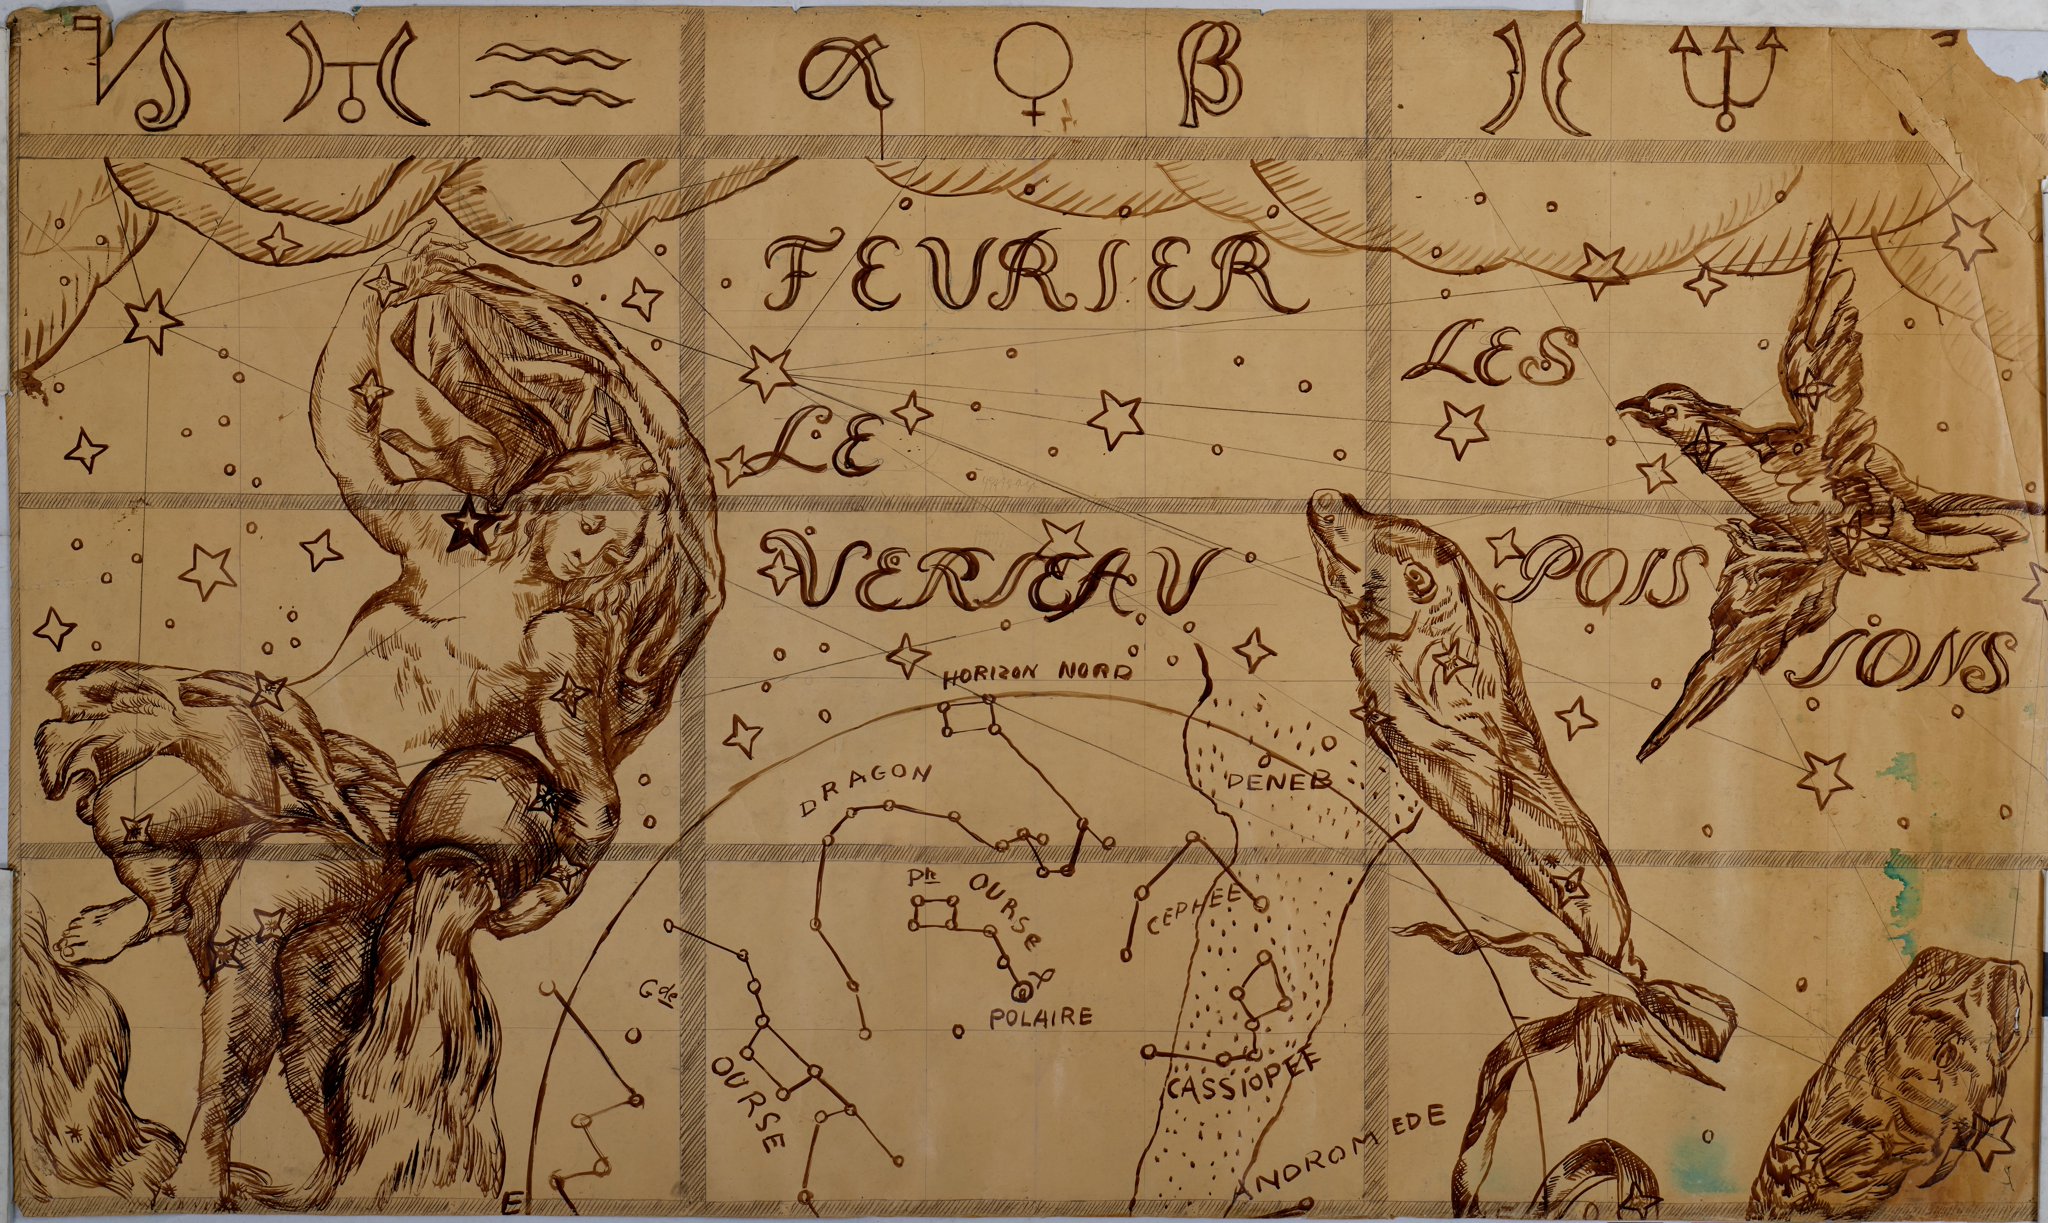 ♑ ♅ ♒ α ♀ β ♓ ♆
FEVRIER
LE
VERSEAU
LES
POIS
SONS
HORIZON NORD
DRAGON
DENEB
Pte OURSE
α
POLAIRE
CEPHEE
Gde
OURSE
CASSIOPEE
ANDROMEDE
E